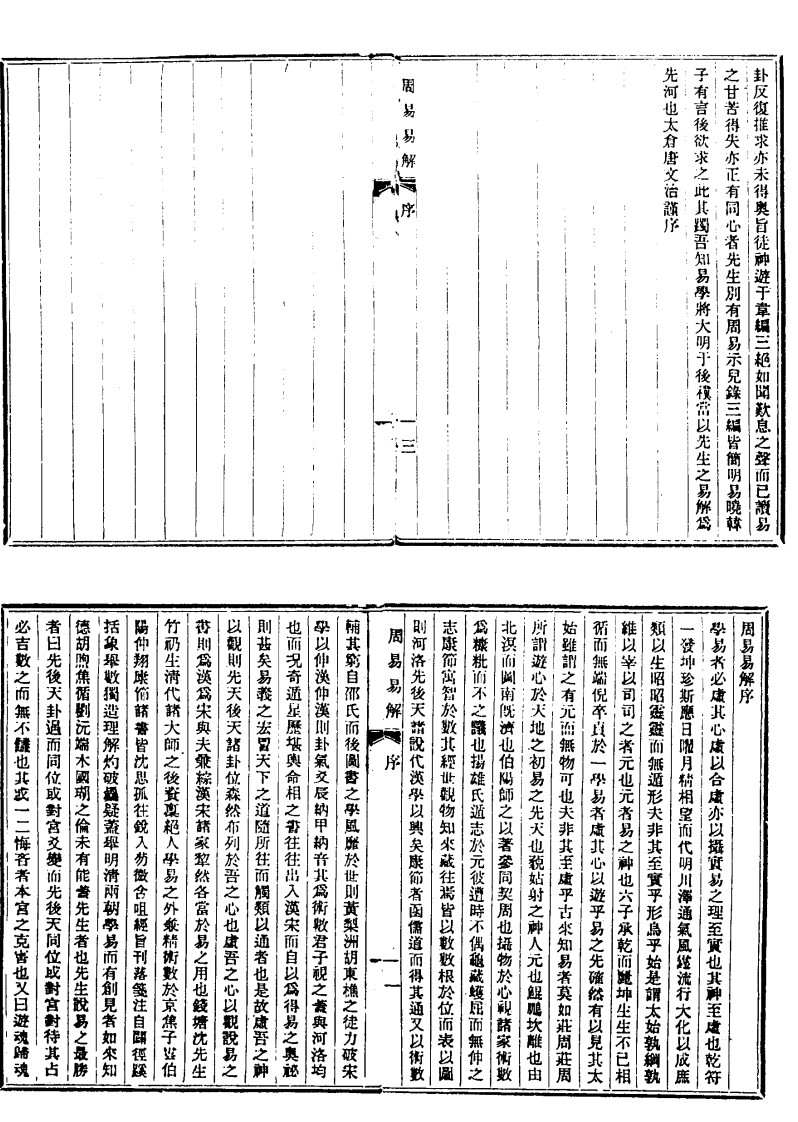 卦反復推求亦未得奧旨徒神遊于韋編三絕如聞歎息之聲而已讀易
之甘苦得失亦正有同心者先生別有周易示兒錄三編皆簡明易曉韓
子有言後欲求之此其躅吾知易學將大明于後禩當以先生之易解爲
先河也太倉唐文治謹序
周易易解 序
一三
周易易解序
學易者必虛其心虛以合虛亦以攝實易之理至實也其神至虛也乾符
一發坤珍斯應日曜月精相望而代明川澤通氣風霆流行大化以成庶
類以生昭昭靈靈而無遁形夫非其至實乎形烏乎始是謂太始孰綱孰
維以宰以司司之者元也元者易之神也六子承乾而麗坤生生不已相
循而無端倪卒貞於一學易者虛其心以遊乎易之先確然有以見其太
始雖謂之有元而無物可也夫非其至虛乎古來知易者莫如莊周莊周
所謂遊心於天地之初易之先天也藐姑射之神人元也鯤鵬坎離也由
北溟而圖南旣濟也伯陽師之以著參同契周也攝物於心視諸家術數
爲糠粃而不之議也揚雄氏遁志於元彼遭時不偶龜藏蠖屈而無伸之
志康節寓智於數其經世觀物知來藏往焉皆以數數根於位而表以圖
則河洛先後天諸說代漢學以興矣康節者函儒道而得其通又以術數
周易易解 序
一一
輔其窮自邵氏而後圖書之學風靡於世則黃梨洲胡東樵之徒力破宋
學以伸漢伸漢則卦氣爻辰納甲納音其爲術數君子視之蓋與河洛均
也而況奇遁星歷堪輿命相之書往往出入漢宋而自以爲得易之奧祕
則甚矣易義之宏冒天下之道隨所往而觸類以通者也是故虛吾之神
以觀則先天後天諸卦位森然布列於吾之心也虛吾之心以觀說易之
書則爲漢爲宋與夫兼綜漢宋諸家犂然各當於易之用也錢塘沈先生
竹礽生清代諸大師之後資稟絕人學易之外兼精術數於京焦子雲伯
陽仲翔康節諸書皆沈思孤往銳入勿徵含咀經旨刊落箋注自闢徑蹊
括象舉數獨造理解灼破疑蓋舉明清兩朝學易而有創見者如來知
德胡煦焦循劉沅端木國瑚之倫未有能善先生者也先生說易之最勝
者曰先後天卦遇而同位或對宮爻變而先後天同位或對宮對待其占
必吉數之而無不讎也其或一二悔吝者本宮之克害也又曰遊魂歸魂